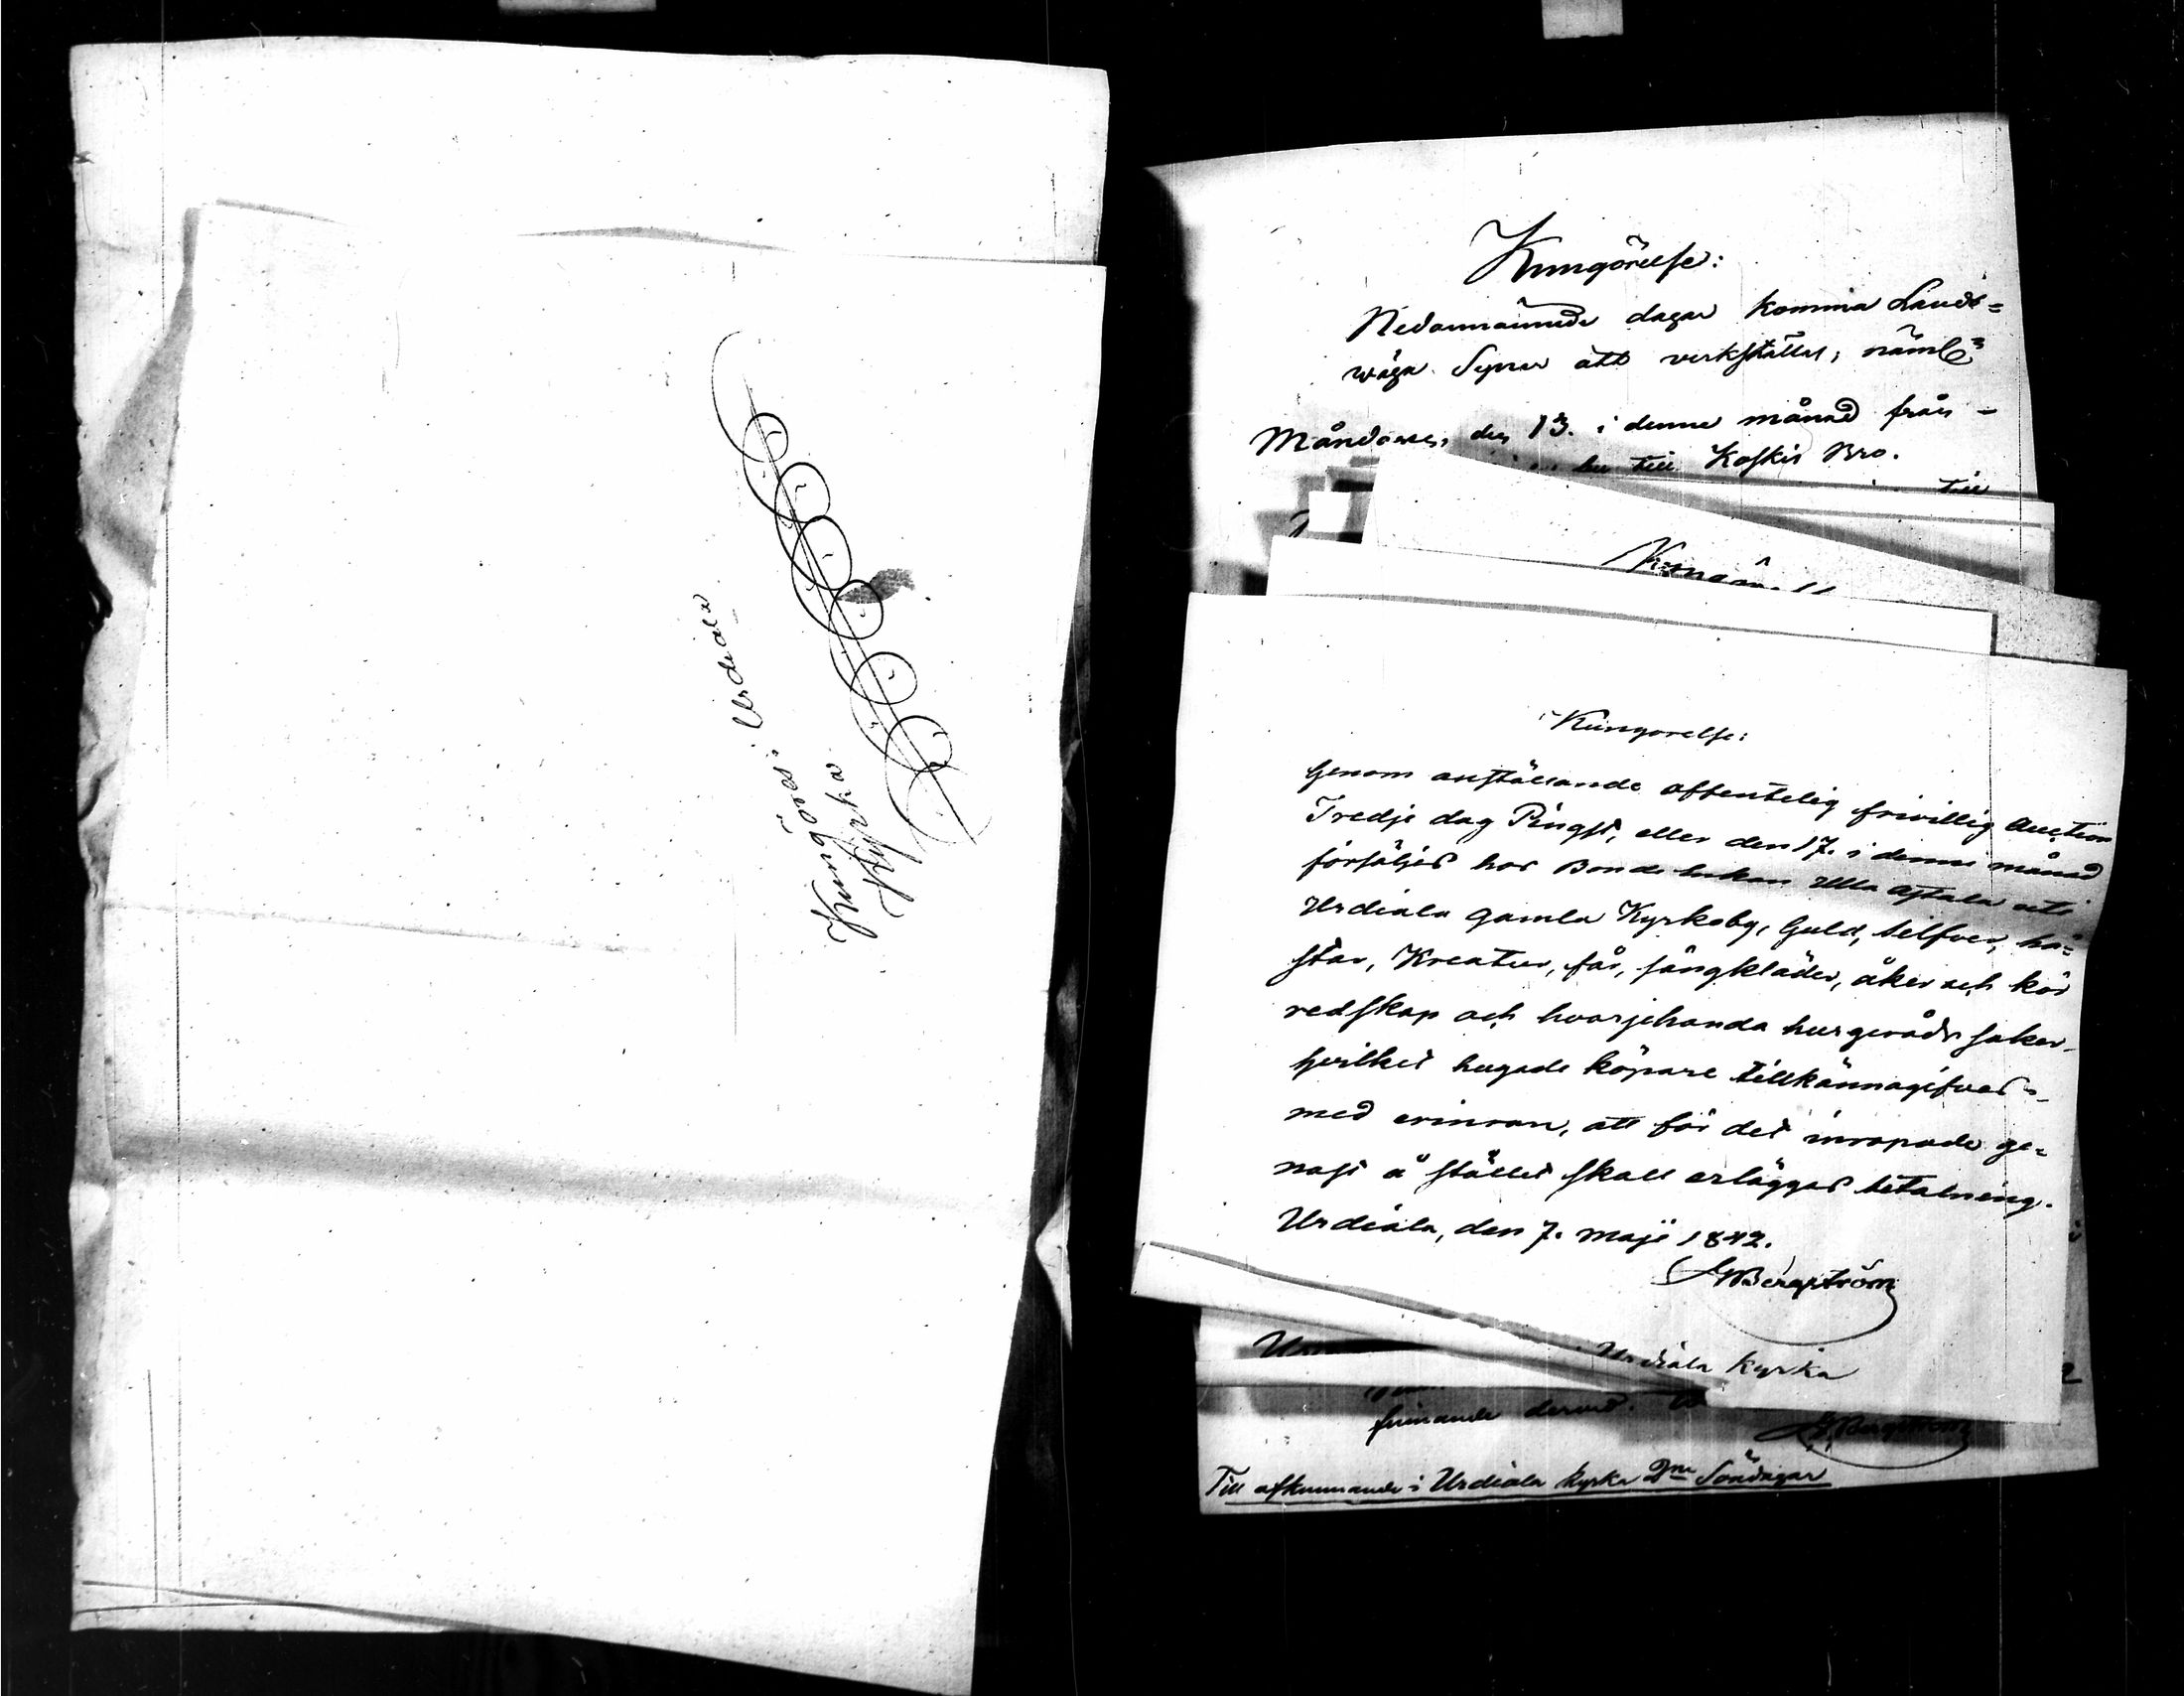 Kungöres i Urdiala
Kyrka
Kungörelse:
Nedannämnde dagar komma Lands=
wäga Syner att verkställas, näml:
Måndagen den 13. i denne månad från
till Koskis Bro.
till
Kungörelse:
Genom anställande offentelig frivillig Auction
Tredje dag Pingst, eller den 17. i denne månad
försäljes hos Bonde Enkan Ulla uti
Urdiala gamla Kyrkoby, Guld, Silfver, hä=
star, Kreatur, får, sängkläder, åker och kör
redskap och hvarjehanda husgeråds saker,
hvilket hugade köpare tillkännagifves,
med erinran, att för det inropade ge=
nast å stället skall erläggas betalning.
Urdiala, den 7. Maji 1842.
Bergström
Urdiala Kyrka
Bergström
Till afkunnande i Urdiala kyrka 2ne Söndagar